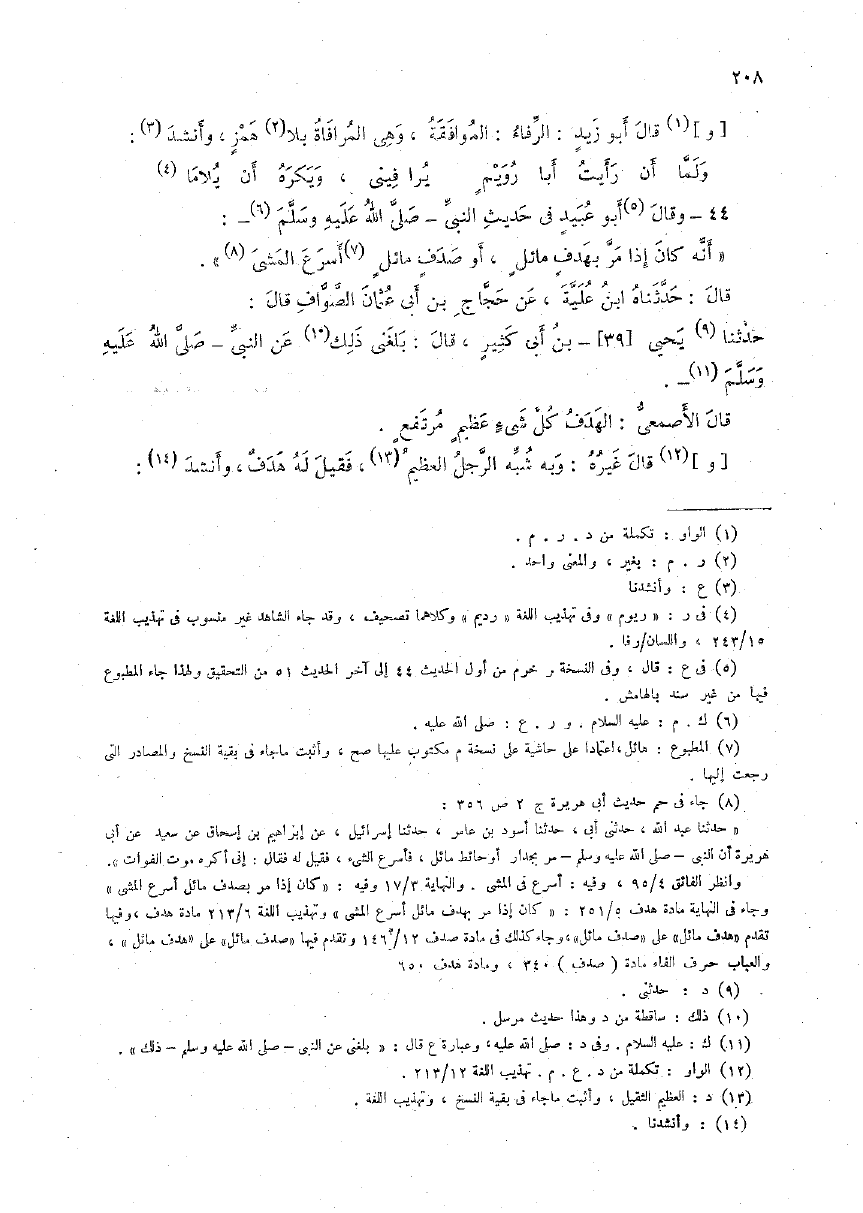 ٢٠٨
[ و ] (١) قالَ أَبو زَيدٍ : الرِّفاءُ : المُوافَقَةُ ، وَهِى المُرافَاةُ بلا (٢) هَمْزٍ ، وأَنشدَ (٣) :
وَلَمَّا أَن رَأَيتُ أَبا رُوَيْمٍ يُرا فِينِى ، وَيَكرَهُ أَن يُلامَا (٤)
٤٤ – وقالَ (٥) أَبو عُبَيدٍ فى حَديثِ النبىِّ – صَلَّى اللهُ عَلَيهِ وسَلَّمَ (٦) – :
« أَنَّه كانَ إِذا مَرَّ بهَدفٍ مائلٍ ، أَو صَدَفٍ مائلٍ (٧) أَسرَعَ المَشىَ (٨) » .
قالَ : حَدَّثَناهُ ابنُ عُلَيَّةَ ، عَن حَجَّاجِ بن أَبى عُثمَانَ الصَّوَّافِ قالَ :
حَدَّثنا (٩) يَحيى [٣٩] – بنُ أَبى كَثيرٍ ، قالَ : بَلغَنى ذَلِك (١٠) عَن النبىِّ – صَلَّى اللهُ عَلَيهِ
وَسَلَّمَ (١١) – .
قالَ الأَصمعىُّ : الهَدَفُ كُلُّ شَىءٍ عَظيمٍ مُرتَفعٍ .
[ و ] (١٢) قالَ غَيرُهُ : وَبه شُبِّه الرَّجلُ العظيمُ (١٣) ، فَقيلَ لَهُ هَدَفٌ ، وأَنشدَ (١٤) :
(١) الواو : تكملة من د . ر . م .
(٢) ر . م : بغير ، والمعنى واحد .
(٣) ع : وأنشدنا
(٤) فى ر : « ريوم » وفى تهذيب اللغة « رديم » وكلاهما تصحيف ، وقد جاء الشاهد غير منسوب فى تهذيب اللغة
٢٤٣/١٥ ، واللسان/رفا .
(٥) فى ع : قال ، وفى النسخة ر خرم من أول الحديث ٤٤ إلى آخر الحديث ٥١ من التحقيق ولهذا جاء المطبوع
فيها من غير سند بالهامش .
(٦) ك . م : عليه السلام . و ر . ع : صلى الله عليه .
(٧) المطبوع : هائل، اعتمادا على حاشية على نسخة م مكتوب عليها صح ، وأثبت ماجاء فى بقية النسخ والمصادر التى
رجعت إليها .
(٨) جاء فى حم حديث أبى هريرة ج ٢ ص ٣٥٦ :
« حدثنا عبد الله ، حدثنى أبى ، حدثنا أسود بن عامر ، حدثنا إسرائيل ، عن إبراهيم بن إسحاق عن سعيد عن أبى
هريرة أن النبى – صلى الله عليه وسلم – مر بجدار أوحائط مائل ، فأسرع المشى ، فقيل له فقال : إنى أكره موت الفوات ».
وانظر الفائق ٩٥/٤ ، وفيه : أسرع فى المشى . والنهاية ١٧/٣ وفيه : «كان إذا مر بصدف مائل أسرع المشى »
وجاء فى النهاية مادة هدف ٢٥١/٥ : « كان إذا مر بهدف مائل أسرع المشى » وتهذيب اللغة ٢١٣/٦ مادة هدف ، وفيها
تقدم «هدف مائل» على «صدف مائل»، وجاء كذلك فى مادة صدف ١٤٦/١٢ وتقدم فيها «صدف مائل» على «هدف مائل» ،
والعباب حرف الفاء مادة ( صدف ) ٣٤٠ ، ومادة هدف ٦٥٠
(٩) د : حدثنى .
(١٠) ذلك : ساقطة من د وهذا حديث مرسل .
(١١) ك : عليه السلام . وفى د : صلى الله عليه، وعبارة ع قال : « بلغنى عن النبى – صلى الله عليه وسلم – ذلك » .
(١٢) الواو : تكملة من د . ع . م . تهذيب اللغة ٢١٣/١٢ .
(١٣) د : العظيم الثقيل ، وأثبت ماجاء فى بقية النسخ ، وتهذيب اللغة .
(١٤) : وأنشدنا .